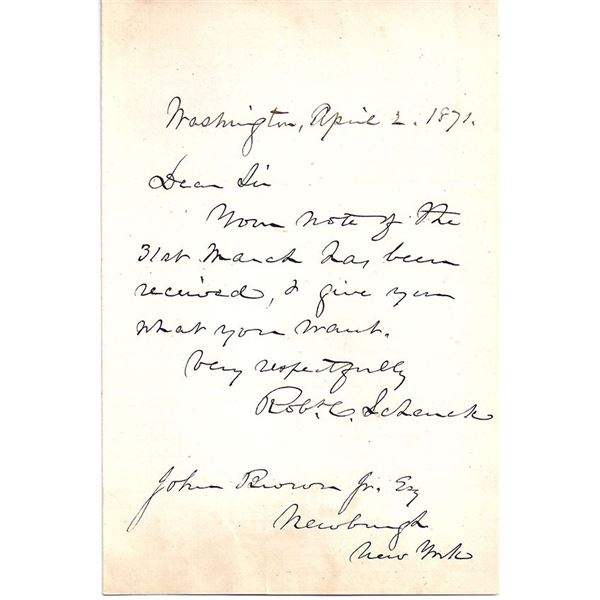 Washington, April 2. 1871.
Dear Sir
Your note of the
31st March has been
received, I give you
what you want.
Very respectfully
Robt. C. Schenck
John Brown Jr. Esq
Newburgh
New York